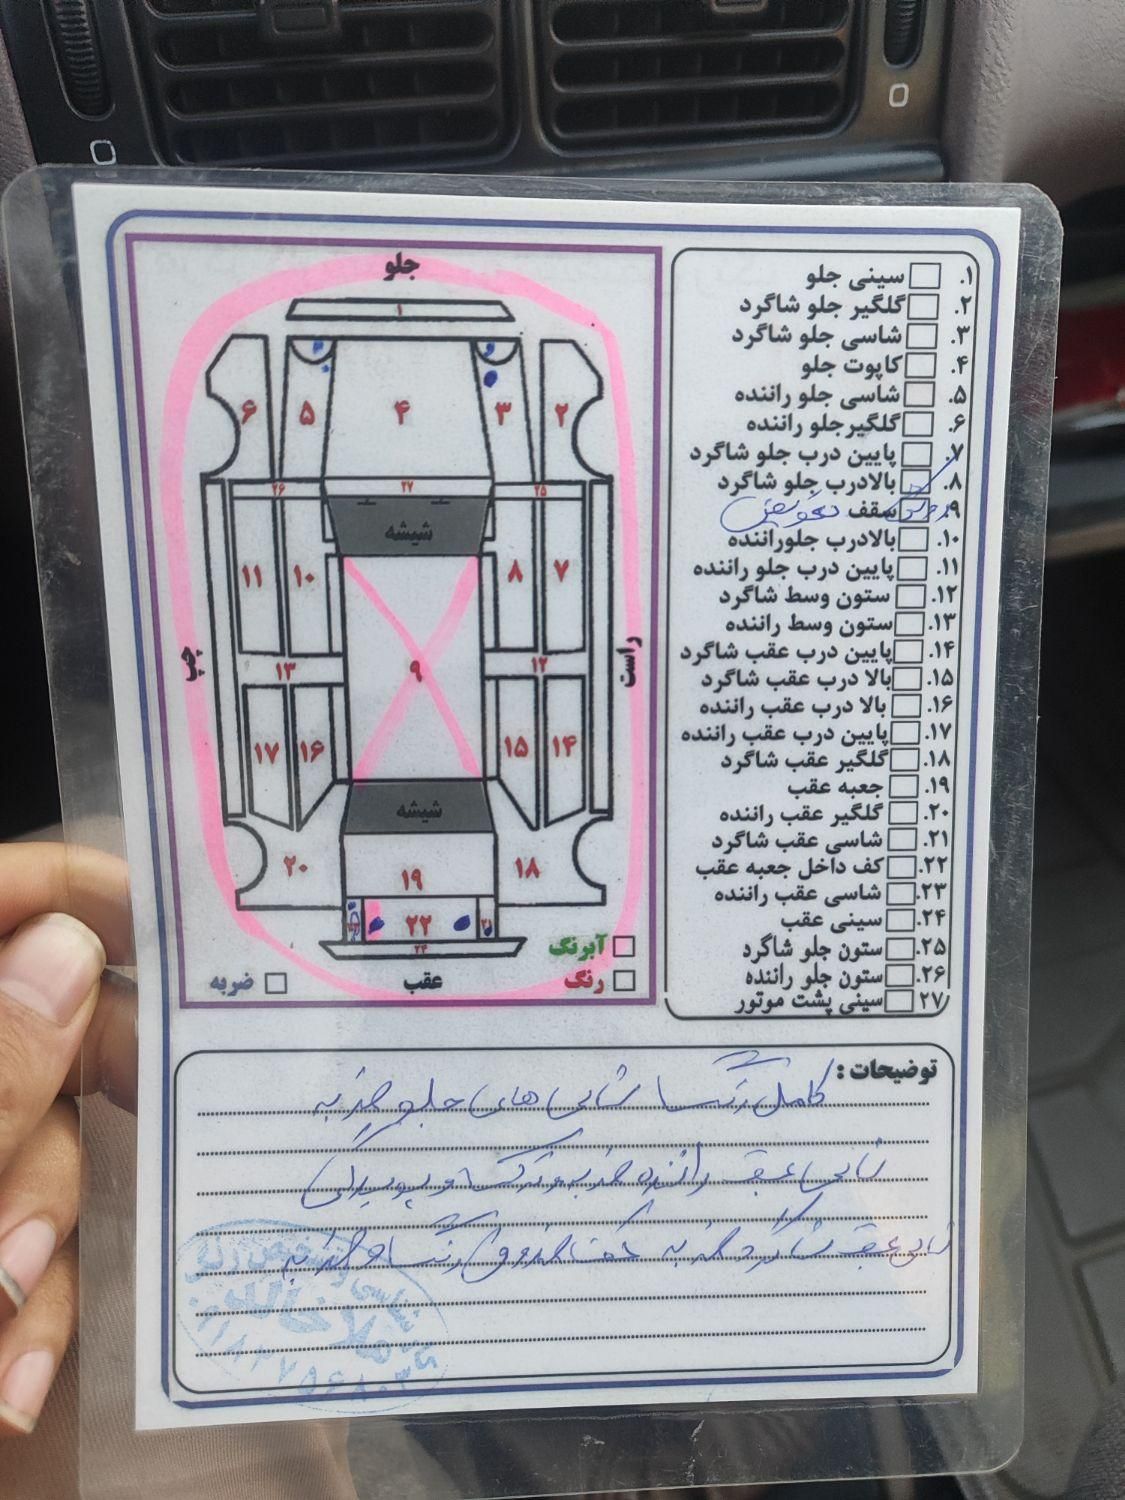 جلو
۱
۶
۵
۴
۳
۲
۲۶
۲۷
۲۵
شیشه
۱۱
۱۰
۸
۷
چپ
راست
۱۳
۹
۱۲
۱۷
۱۶
۱۵
۱۴
شیشه
۲۰
۱۹
۱۸
۲۲
۲۱
۲۴
عقب
آبرنگ
رنگ
ضربه
۱. سینی جلو
۲. گلگیر جلو شاگرد
۳. شاسی جلو شاگرد
۴. کاپوت جلو
۵. شاسی جلو راننده
۶. گلگیرجلو راننده
۷. پایین درب جلو شاگرد
۸. بالادرب جلو شاگرد
۹. سقف تعویض
۱۰. بالادرب جلوراننده
۱۱. پایین درب جلو راننده
۱۲. ستون وسط شاگرد
۱۳. ستون وسط راننده
۱۴. پایین درب عقب شاگرد
۱۵. بالا درب عقب شاگرد
۱۶. بالا درب عقب راننده
۱۷. پایین درب عقب راننده
۱۸. گلگیر عقب شاگرد
۱۹. جعبه عقب
۲۰. گلگیر عقب راننده
۲۱. شاسی عقب شاگرد
۲۲. کف داخل جعبه عقب
۲۳. شاسی عقب راننده
۲۴. سینی عقب
۲۵. ستون جلو شاگرد
۲۶. ستون جلو راننده
۲۷. سینی پشت موتور
توضیحات :
کامل رنگ شاسی های جلو ضربه
شاسی عقب راننده ضربه و ترک و پوسیدگی
شاسی عقب شاگرد ضربه کف صندوق رنگ و ضربه